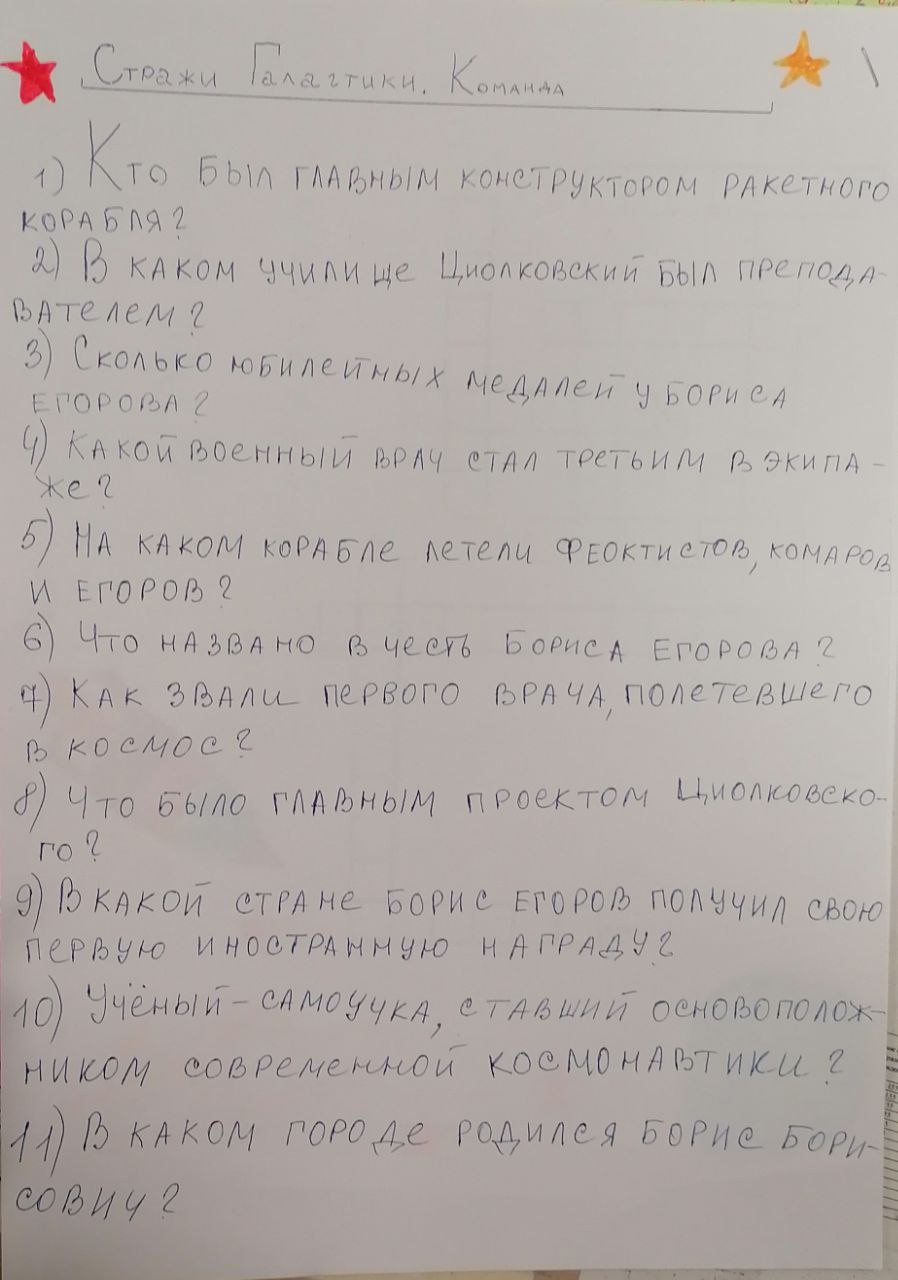 Стражи Галагтики. Команда
1) Кто был главным конструктором ракетного
корабля?
2) В каком училище Циолковский был препода-
вателем?
3) Сколько юбилейных медалей у Бориса
Егорова?
4) Какой военный врач стал третьим в экипа-
же?
5) На каком корабле летели Феоктистов, Комаров
и Егоров?
6) Что названо в честь Бориса Егорова?
7) Как звали первого врача, полетевшего
в космос?
8) Что было главным проектом Циолковско-
го?
9) В какой стране Борис Егоров получил свою
первую иностранную награду?
10) Учёный-самоучка, ставший основополож-
ником современной космонавтики?
11) В каком городе родился Борис Бори-
сович?